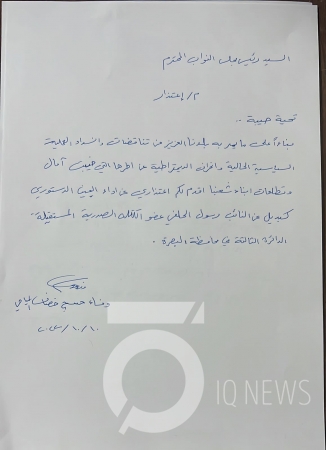 السيد رئيس مجلس النواب المحترم
م/ اعتذار
تحية طيبة ..
بناءاً على ما يمر به بلدنا العزيز من تناقضات وانسداد العملية
السياسية الحالية وافراغ الديمقراطية من اطرها التي خيبت آمال
وتطلعات ابناء شعبنا اقدم لكم اعتذاري عن اداء اليمين الدستوري
كبديل عن النائب رسول الحلفي عضو الكتلة الصدرية المستقيلة
الدائرة الثالثة في محافظة البصرة .
٢٠٢٢/١٠/١٠
IQ NEWS